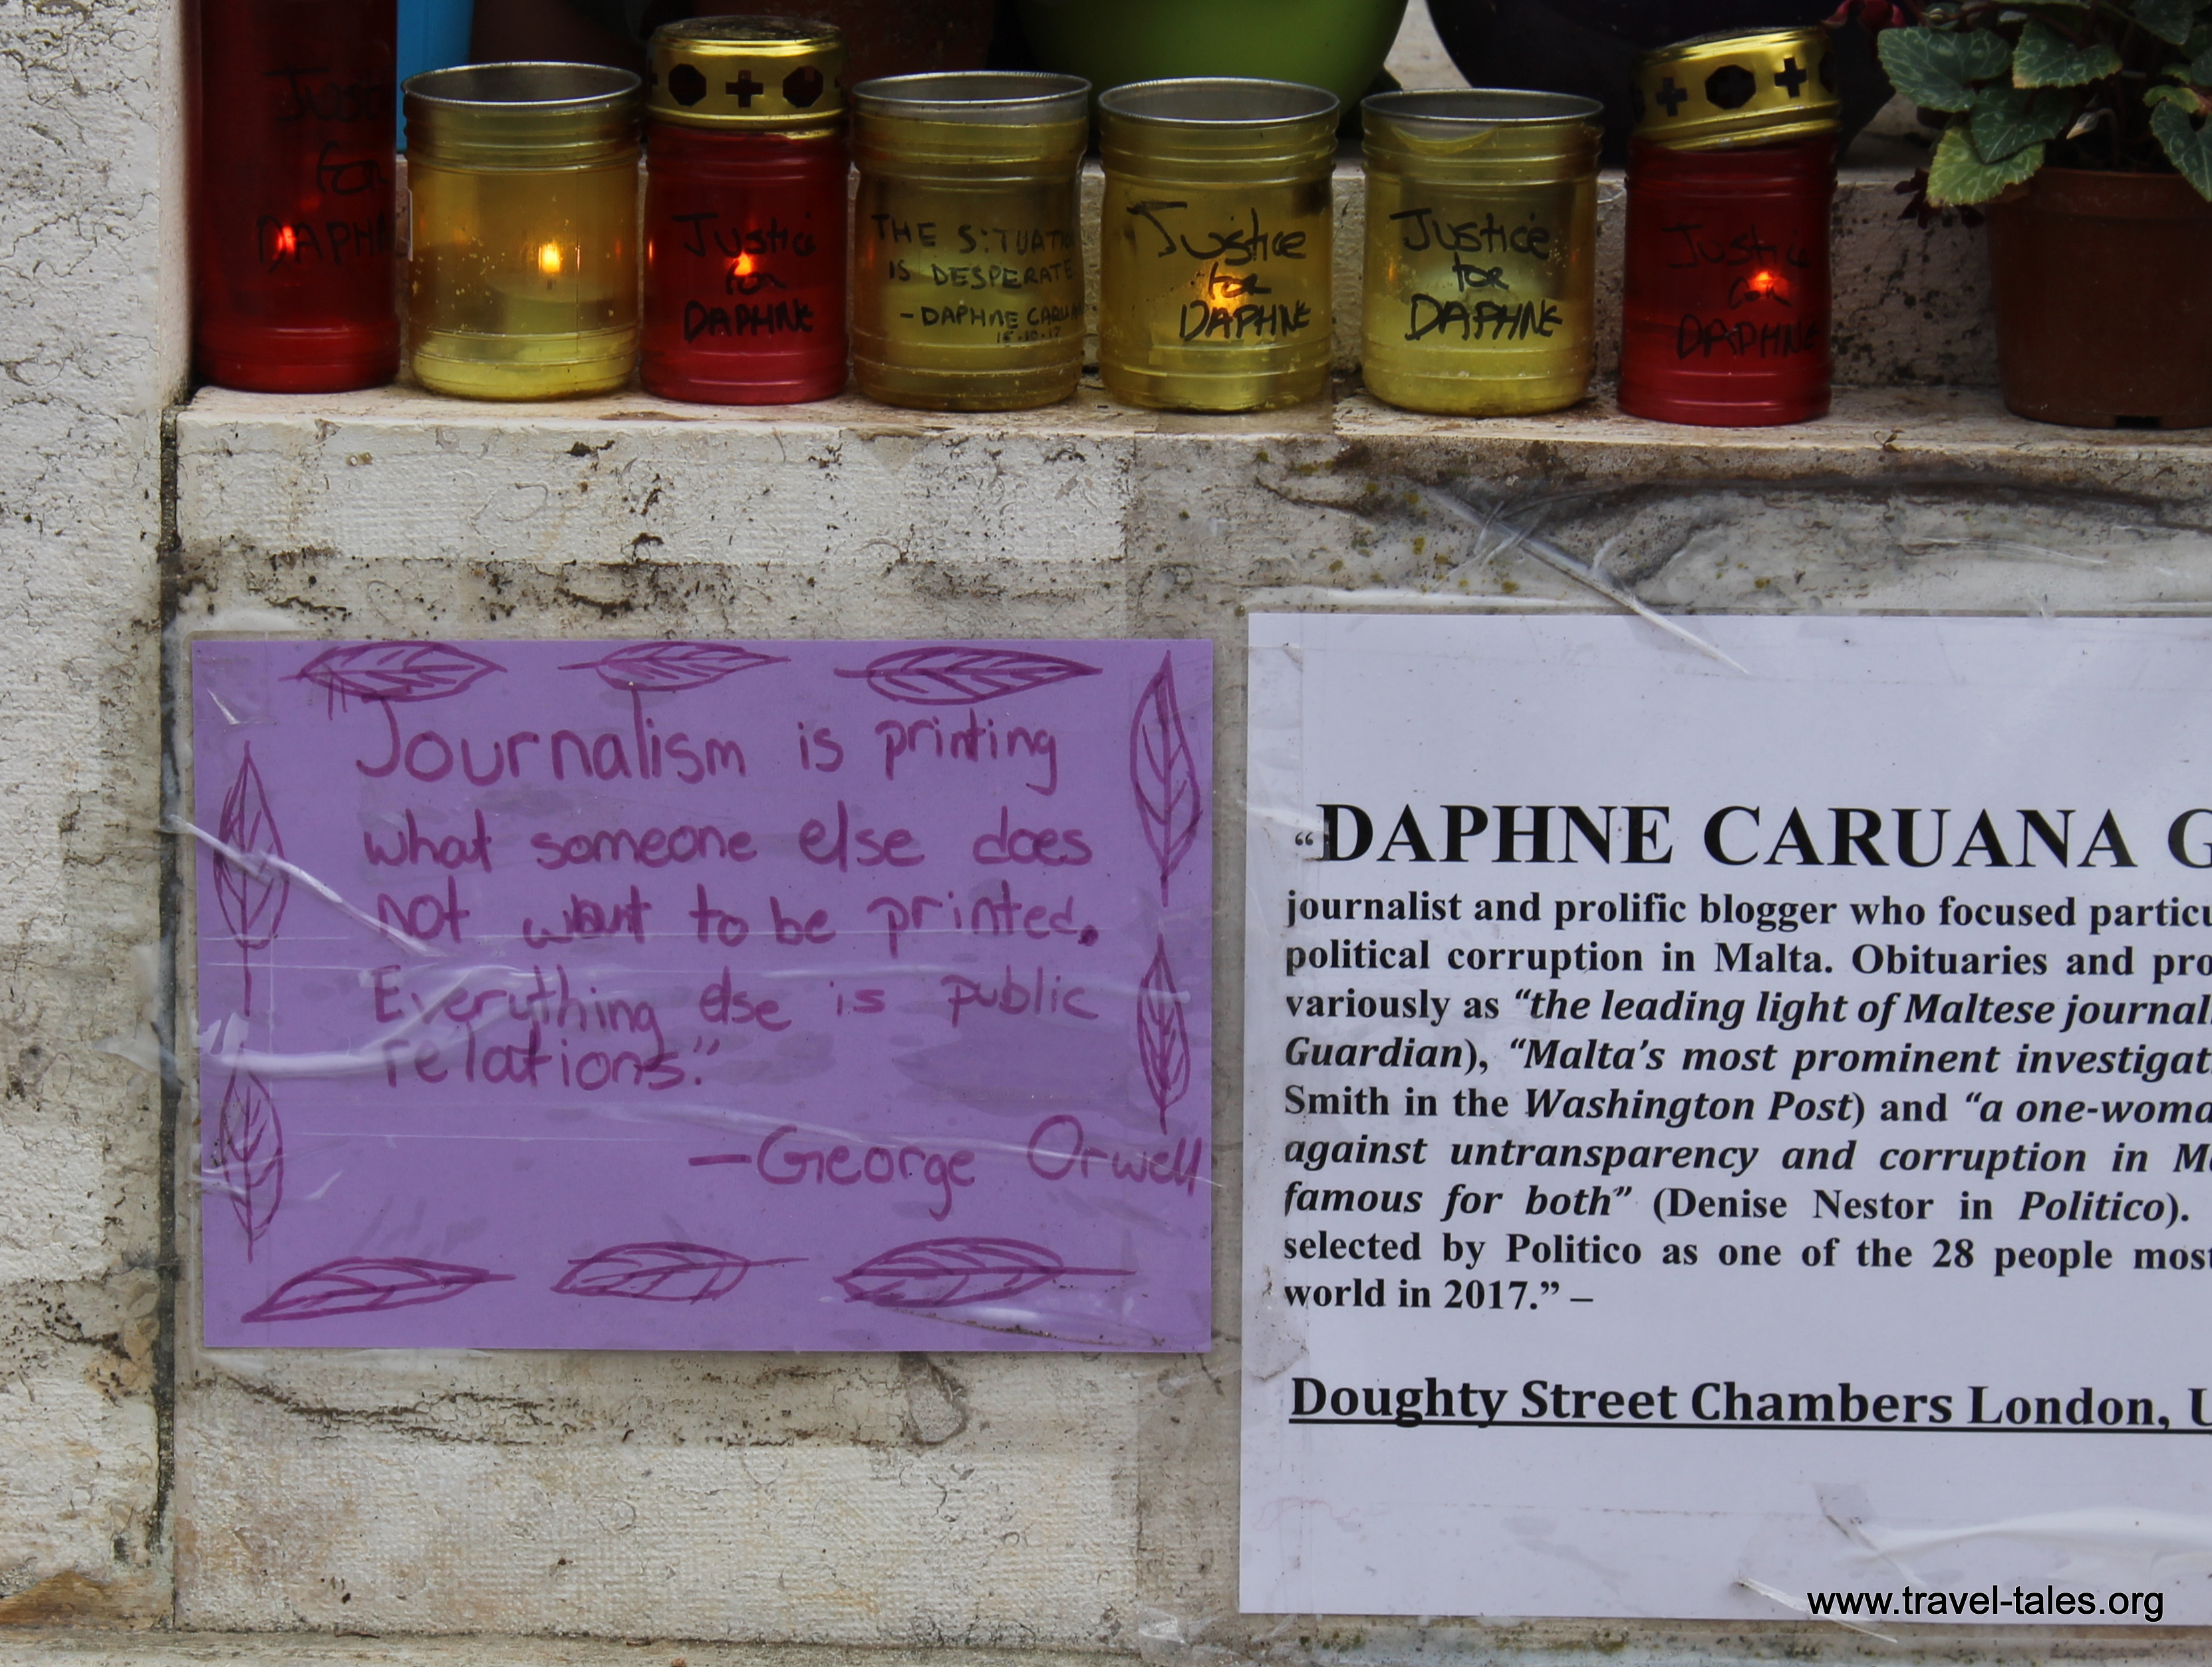 Just
for
DAPHN
Justice
for
DAPHNE
THE SITUATION
IS DESPERATE
-DAPHNE CARUANA
Justice
for
DAPHNE
Justice
for
DAPHNE
Justice
for
DAPHNE
"Journalism is printing
what someone else does
not want to be printed.
Everything else is public
relations."
—George Orwell
“DAPHNE CARUANA G
journalist and prolific blogger who focused particu
political corruption in Malta. Obituaries and pro
variously as “the leading light of Maltese journal
Guardian), “Malta’s most prominent investigat
Smith in the Washington Post) and “a one-woma
against untransparency and corruption in Ma
famous for both” (Denise Nestor in Politico).
selected by Politico as one of the 28 people most
world in 2017.” –
Doughty Street Chambers London, U
www.travel-tales.org